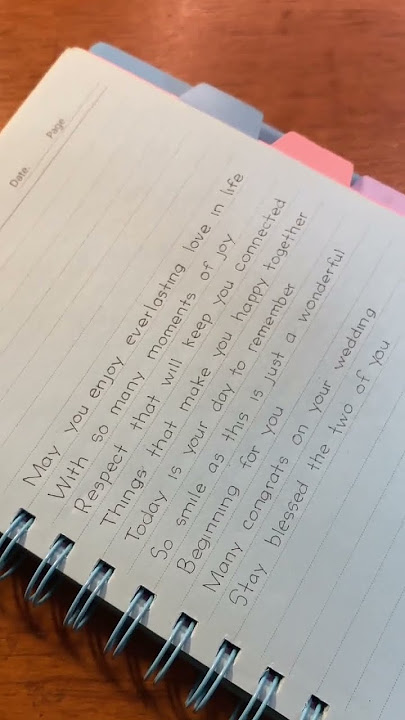 Date.
Page
May you enjoy everlasting love in life
With so many moments of joy
Respect that will keep you connected
Things that make you happy together
Today is your day to remember
So smile as this is just a wonderful
Beginning for you
Many congrats on your wedding
Stay blessed the two of you